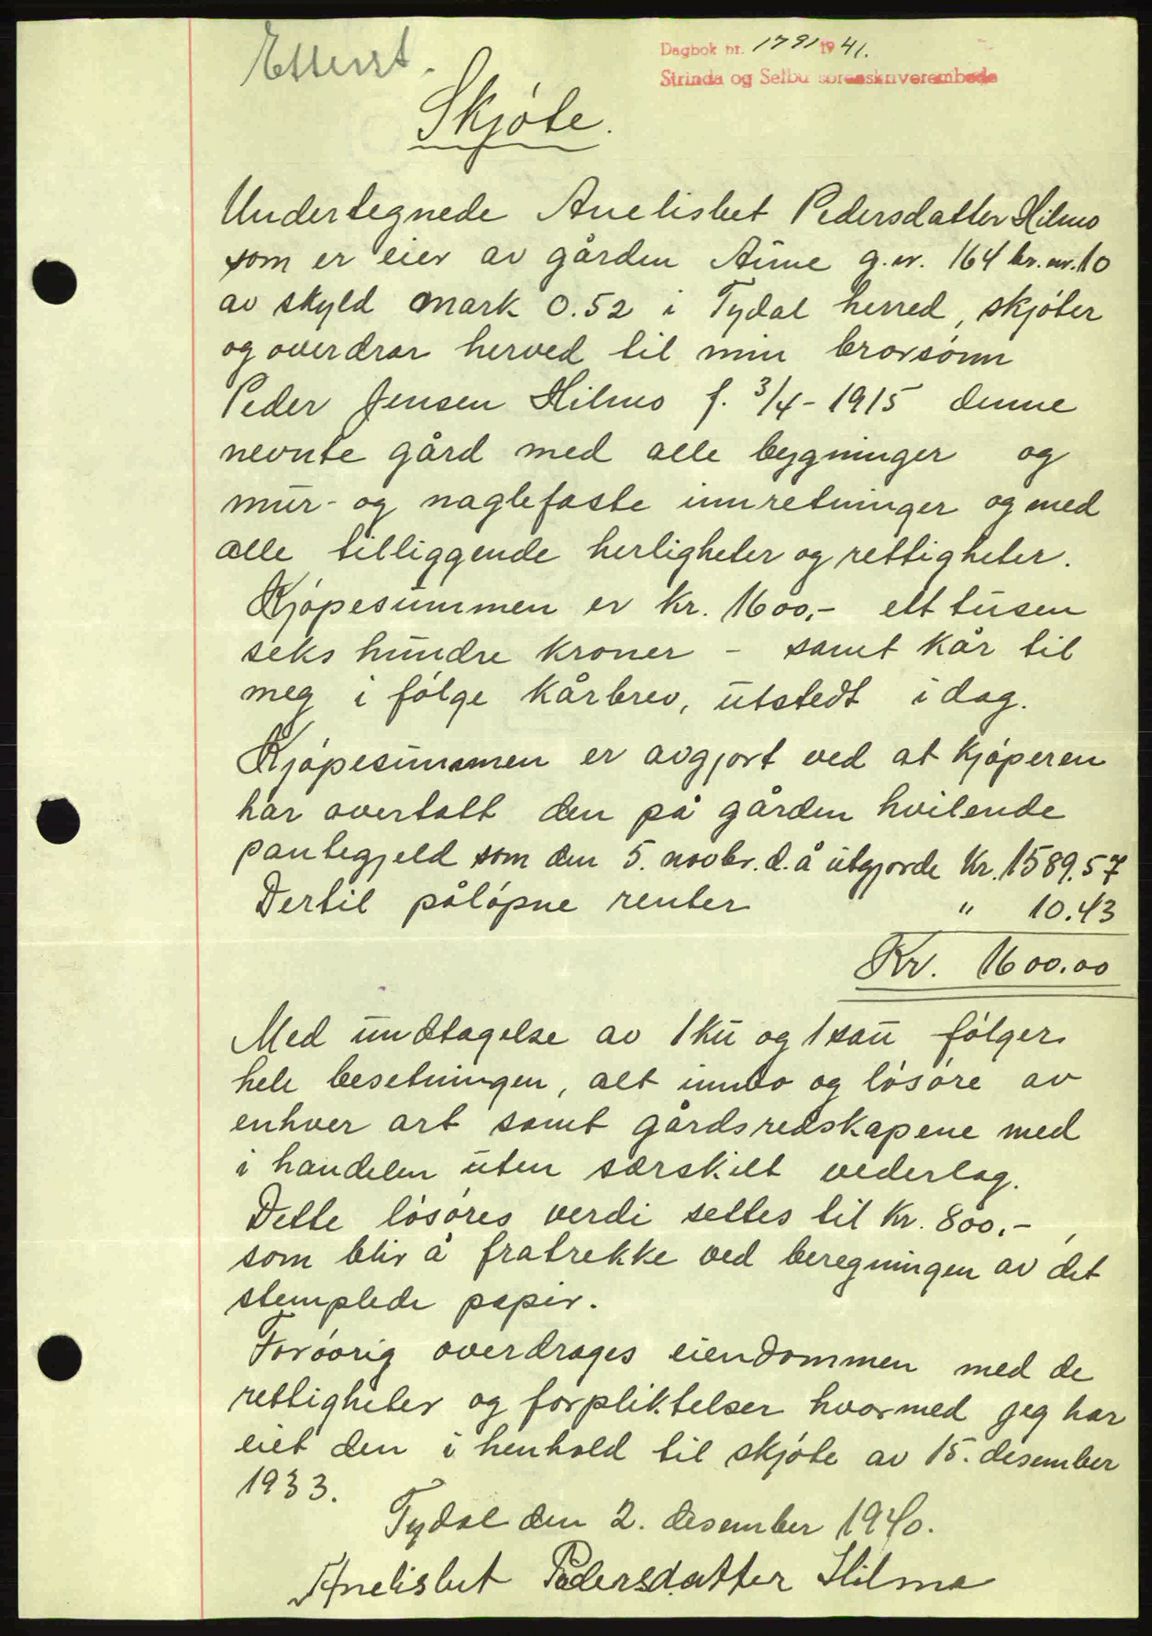 Dagbok nr. 1791 1941.
Strinda og Selbu sorenskriverembede
Skjøte.
Undertegnede Anelisbet Pedersdatter Hilmo
som er eier av gården Aune g.nr. 164 br.nr. 10
av skyld mark 0.52 i Tydal herred, skjøter
og overdrar herved til min brorsønn
Peder Jensen Hilmo f. 3/4-1915 denne
nevnte gård med alle bygninger og
mur- og naglefaste innretninger og med
alle tilliggende herligheter og rettigheter.
Kjøpesummen er kr. 1600,- ett tusen
seks hundre kroner - samt kår til
meg i følge kårbrev, utstedt idag.
Kjøpesummen er avgjort ved at kjøperen
har overtatt den på gården hvilende
pantegjeld som den 5. novbr. d.å utgjorde kr. 1589.57
Dertil påløpne renter " 10.43
Kr. 1600.00
Med undtagelse av 1 ku og 1 sau følger
hele besetningen, alt innbo og løsøre av
enhver art samt gårdsredskapene med
i handelen uten særskilt vederlag.
Dette løsøres verdi settes til kr. 800,-,
som blir å fratrekke ved beregningen av det
stemplede papir.
Forøvrig overdrages eiendommen med de
rettigheter og forpliktelser hvormed jeg har
eiet den i henhold til skjøte av 15. desember
1933.
Tydal den 2. desember 1940.
Anelisbet Pedersdatter Hilmo